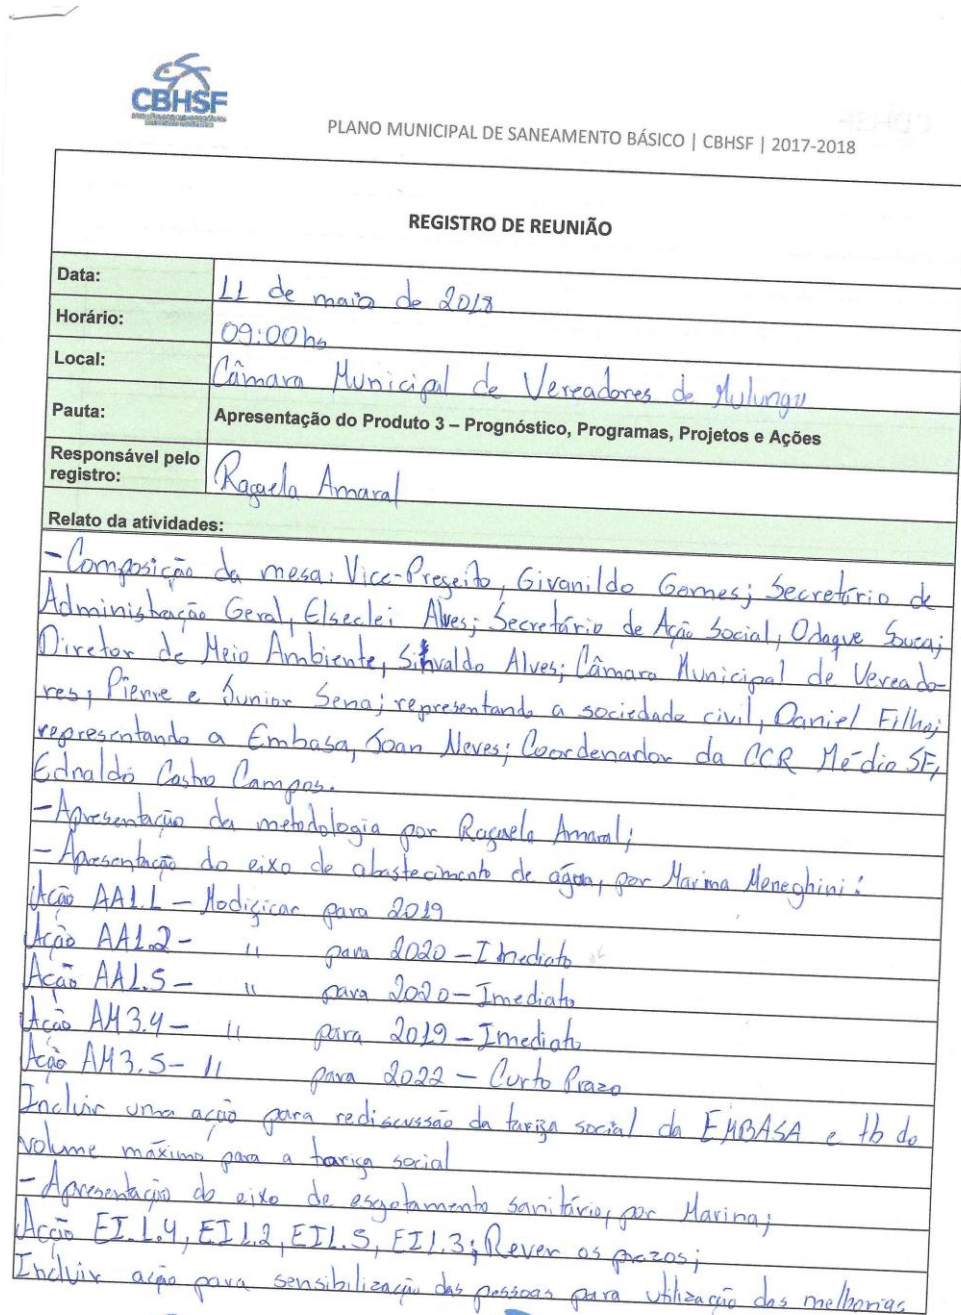 CBHSF
PLANO MUNICIPAL DE SANEAMENTO BÁSICO | CBHSF | 2017-2018
REGISTRO DE REUNIÃO
Data: 11 de maio de 2018
Horário: 09:00 hs
Local: Câmara Municipal de Vereadores de Mulungu
Pauta: Apresentação do Produto 3 – Prognóstico, Programas, Projetos e Ações
Responsável pelo registro: Rafaela Amaral
Relato da atividades:
- Composição da mesa: Vice-Prefeito, Givanildo Gomes; Secretário de
Administração Geral, Elseclei Alves; Secretário de Ação Social, Odaque Souca;
Diretor de Meio Ambiente, Sinvaldo Alves; Câmara Municipal de Vereado-
res, Pierre e Junior Sena; representando a sociedade civil, Daniel Filho;
representando a Embasa, Joan Neves; Coordenador da CCR Médio SF,
Ednaldo Castro Campos.
- Apresentação da metodologia por Rafaela Amaral;
- Apresentação do eixo de abastecimento de água, por Marina Meneghini:
Ação AA1.1 - Modificar para 2019
Ação AA1.2 - " para 2020 - Imediato
Ação AA1.5 - " para 2020 - Imediato
Ação AM3.4 - " para 2019 - Imediato
Ação AM3.5 - " para 2022 - Curto Prazo
Incluir uma ação para rediscussão da tarifa social da EMBASA e tb do
volume máximo para a tarifa social
- Apresentação do eixo de esgotamento sanitário, por Marina;
Acção EI.1.4, EI1.2, EI1.5, EI1.3; Rever os prazos;
Incluir ação para sensibilização das pessoas para utilização das melhorias